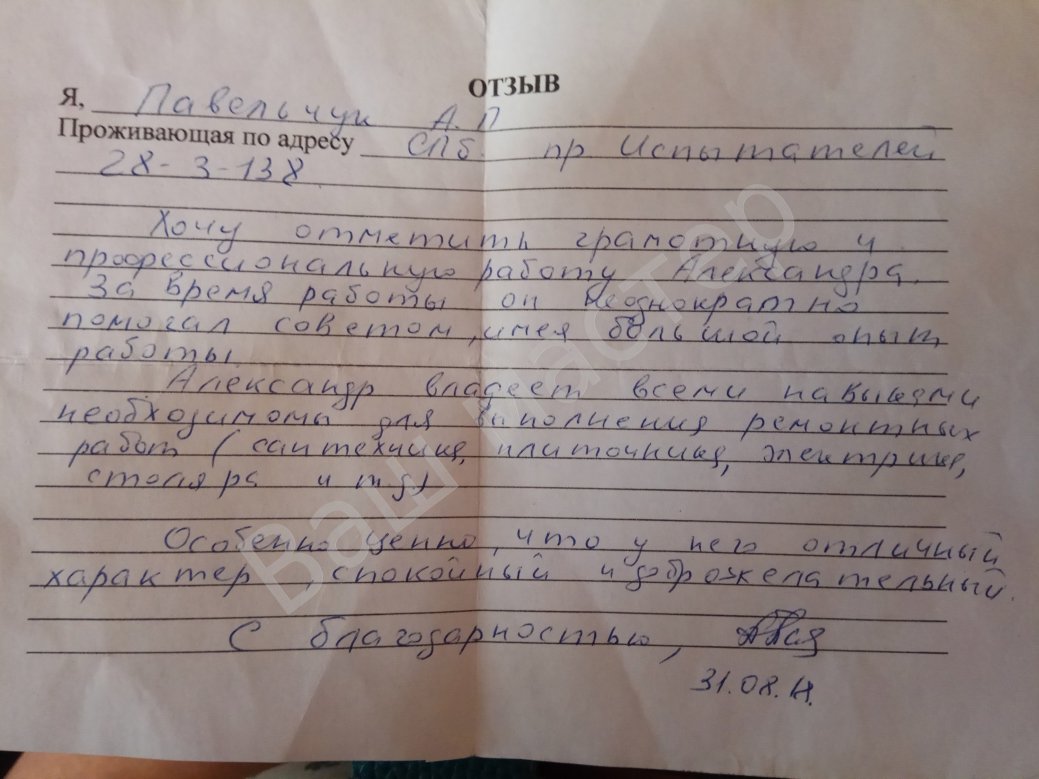 ОТЗЫВ
Я, Павельчук А.П
Проживающая по адресу СПб. пр Испытателей
28-3-138
Хочу отметить грамотную и
профессиональную работу Александра.
За время работы он неоднократно
помогал советом, имея большой опыт
работы
Александр владеет всеми навыками
необходимомы для выполнения ремонтных
работ (сантехника, плиточника, электрика,
столяра и т.д)
Особенно ценно, что у него отличный
характер, спокойный и доброжелательный.
С благодарностью,
31.08.18.
Ваш мастер